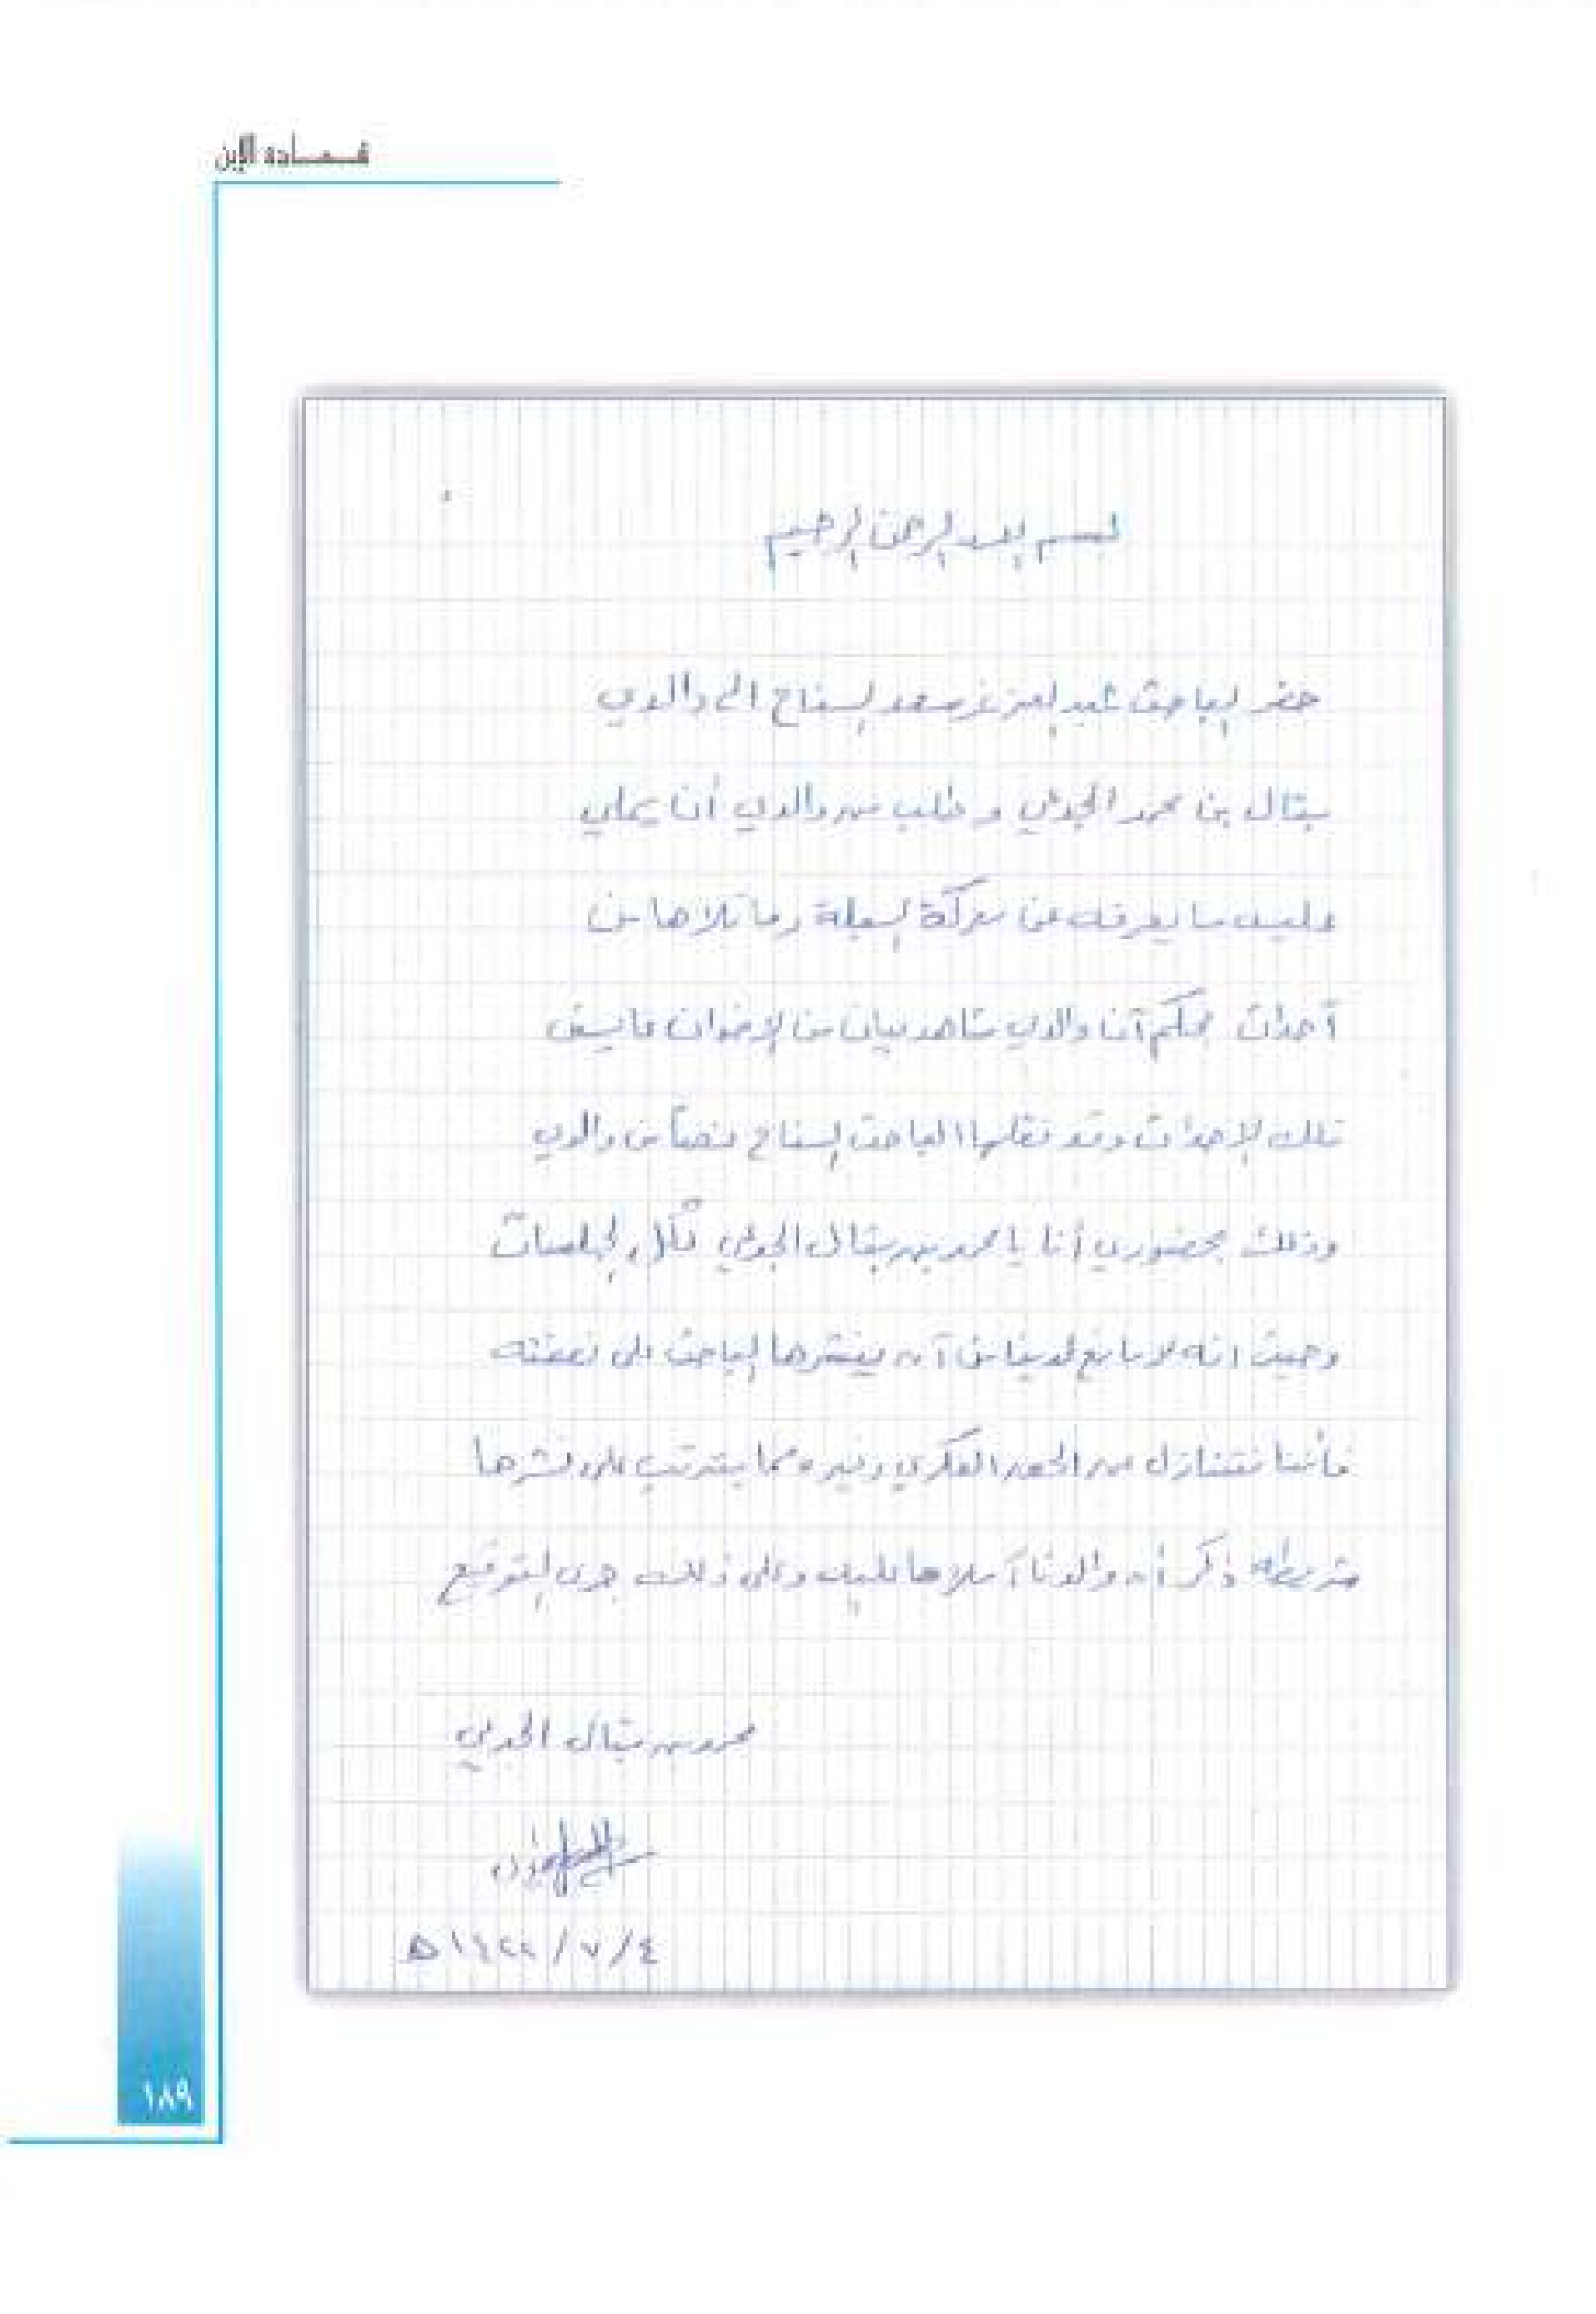 شهادة الإبن
بسم الله الرحمن الرحيم
حضر الباحث عبدالعزيز سعد السناح الى والدي
بتال بن محمد الجدعي وطلب من والدي أن يملي
عليه ما يعرفه عن معركة السبلة وما تلاها من
أحداث بحكم أن والدي شاهد عيان من الإخوان عايش
تلك الأحداث وقد نقلها الباحث السناح نصاً من والدي
وذلك بحضوري أنا يا محمد بن بتال الجدعي لكل الجلسات
وحيث انه لا مانع لدينا من أن ينشرها الباحث على نفقته
فأننا نتنازل من الحق الفكري وغيره مما يترتب على نشرها
شريطة ذكر أن والدنا أملاها عليه وعلى ذلك جرى التوقيع
محمد بن بتال الجدعي
٤/٧/١٤٢٢ھ
١٨٩